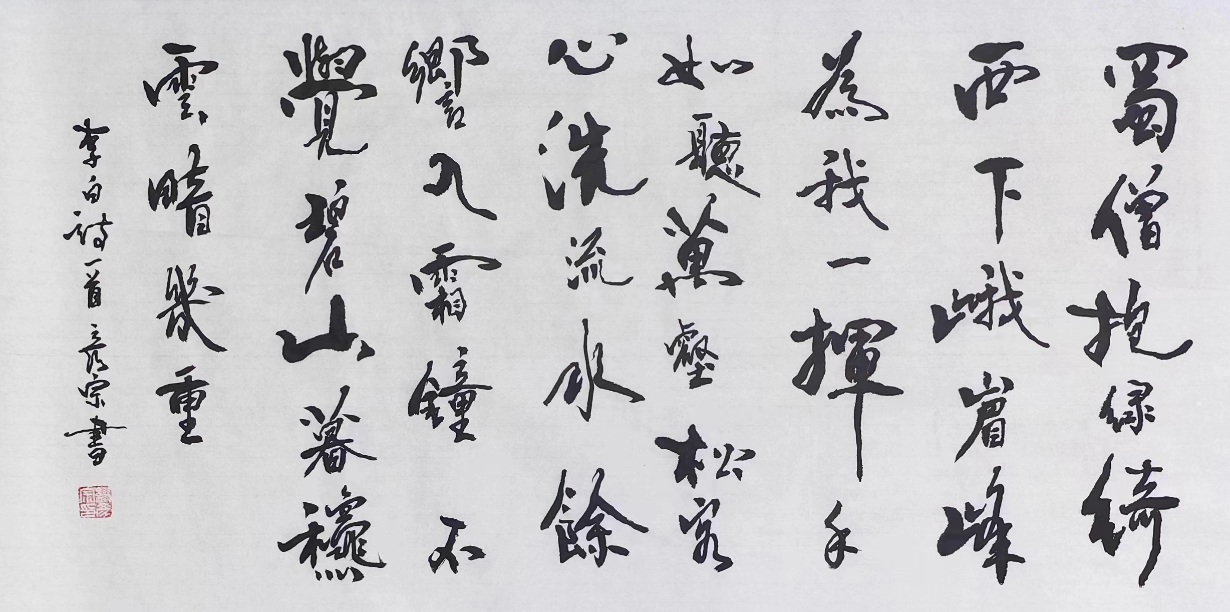 蜀僧抱綠綺
西下峨嵋峰
為我一揮手
如聽萬壑松客
心洗流水餘
響入霜鐘不
覺碧山暮龝
雲暗幾重
李白詩一首 彥宗書